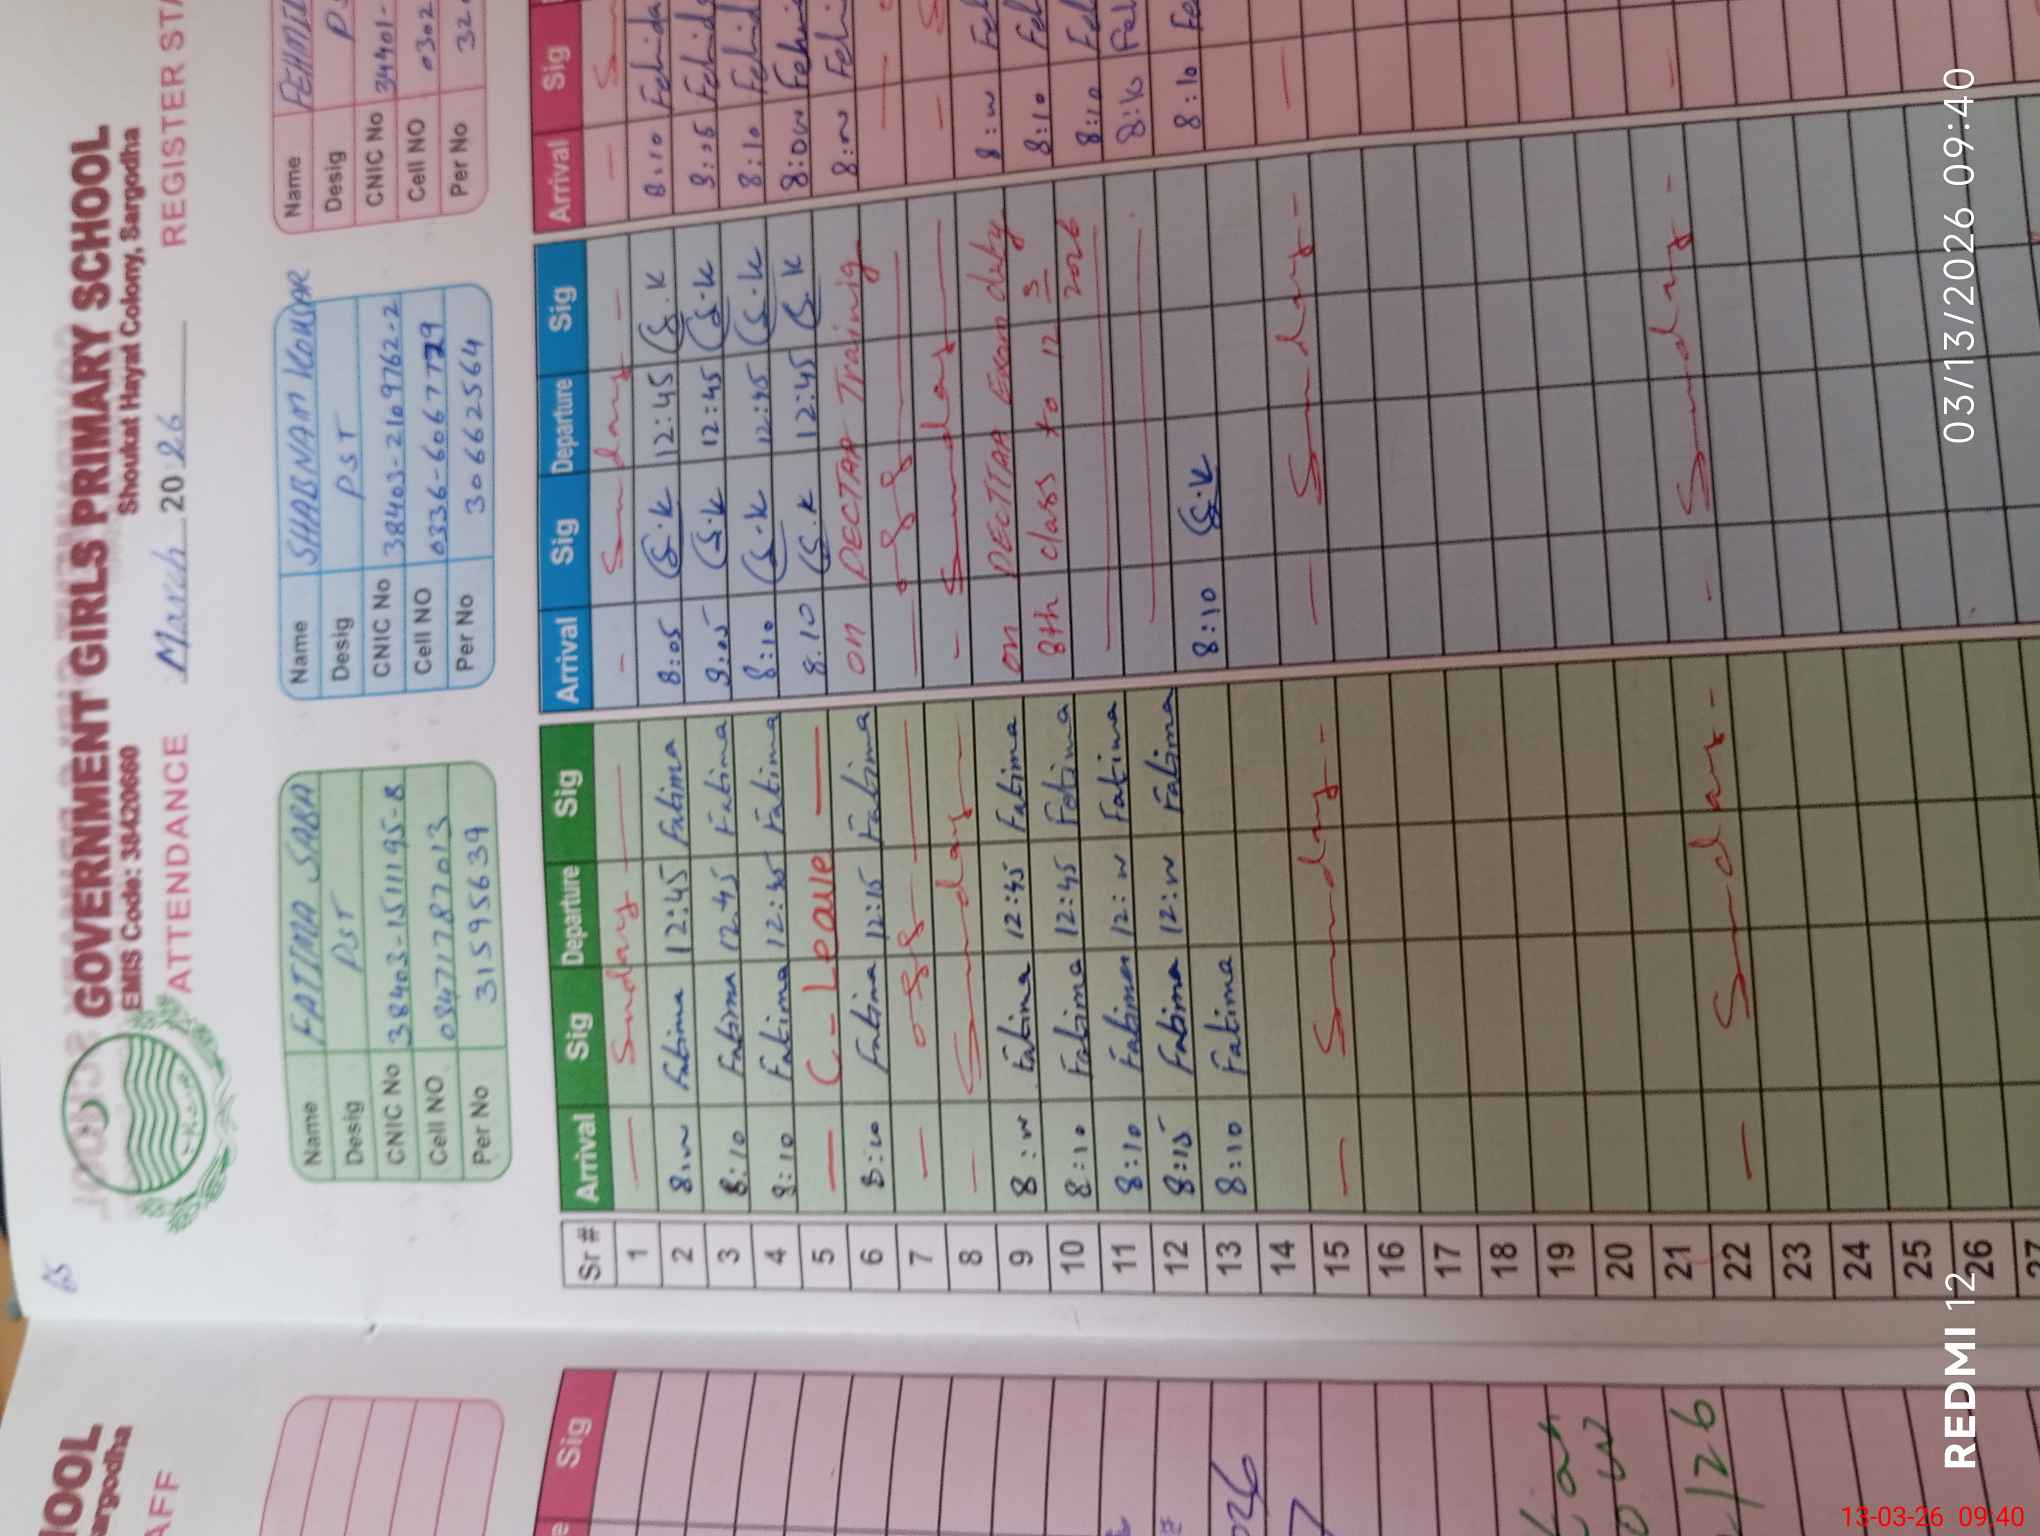 65
GOVERNMENT GIRLS PRIMARY SCHOOL
EMIS Code: 38420660 Shoukat Hayat Colony, Sargodha
ATTENDANCE March 2026 REGISTER STA
Name FATIMA SABA
Desig PST
CNIC No 38403-1511195-8
Cell NO 03471787013
Per No 31595639
Name SHABNAM KOUSAR
Desig PST
CNIC No 38403-2169762-2
Cell NO 0336-6067729
Per No 30662564
Name FEHMI
Desig PS
CNIC No 34401-
Cell NO 0302
Per No 32
Sr # Arrival Sig Departure Sig Arrival Sig Departure Sig Arrival Sig
1 — Sunday — - Sunday - — Sun
2 Fatima 12:45 Fatima 8:05 S.K 12:45 S.K 8:10 Fehmida
3 8:10 Fatima 12:45 Fatima 8:05 S.K 12:45 S.K 8:05 Fehmida
4 8:10 Fatima 12:45 Fatima 8:10 S.K 12:45 S.K 8:10 Fehmid
5 — C-Leave — 8:10 S.K 12:45 S.K 8:00 Fehmi
6 8:10 Fatima 12:15 Fatima on Training Fehmi
7 — — — —
8 - Sunday - - Sunday — — S
9 Fatima 12:45 Fatima on Exam duty Feh
10 8:10 Fatima 12:45 Fatima 8th class to 12 3 2026 8:10 Fe
11 8:10 Fatima Fatima 8:10 Fe
12 8:15 Fatima Fatima 8:10 Fe
13 8:10 Fatima 8:10 S.K 8:10 Fe
14
15 — Sunday - — Sunday - —
16
17
18
19
20
21
22 — Sunday - - Sunday - -
23
24
25
26
27
HOOL
argodha
AFF
Sig
026
/26
REDMI 12
03/13/2026 09:40
13-03-26 09:40